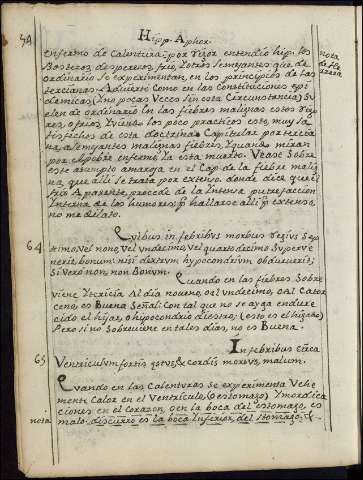 54
Hipp. Aphor.
enfermo de Calentura: por rigor entendio hip. los
Bostezos, desperezos, frio, Y otros semejantes que de
ordinario se experimentan, en los principios de las
tercianas. Advierto como en las constituciones epi
demicas (Y no pocas veces sin esta circunstancia) su
elen de ordinario en las fiebres malignas estos rigo
res, o frios, Y viendo los poco practicos este, muy sa
tisfechos de esta doctrina Capitular por tercia
na, a semejantes malignas fiebres, Y quando miran
por el pobre enfermo Ya esta muerto. Vease sobre
este asumpto a maroja en el Cap. de la fiebre malig
na, que alli se trata por extenso, donde dice, que el
frio Aparente, procede de la Intensa putrefaccion
Interna de los humores, pr. hallarse alli pr. extenso,
no me dilato.
nota
64
Quibus in febribus morbus regius Sep
timo, vel nono, vel undecimo, vel quarto decimo Superve
nerit, bonum: nisi dextrum hypocondrium obduruerit:
Si vero non, non Bonum.
Quando en las fiebres Sobre
viene Ytericia Al dia noveno, o al undecimo, o al Cator
ceno, es Buena Señal: Con tal que no se aya endure
cido el hijar, o hipocondrio diestro; (esto es el higado)
Pero si no Sobreviene en tales dias, no es Buena.
65
In febribus circa
Ventriculum fortis estus, & cordis morsus, malum.
Quando en las Calenturas se experimenta Vehe
mente Calor en el Ventriculo, (o estomago) Y mordica
ciones en el corazon, o en la boca del estomago, es
malo. discurro es la boca Inferior, del stomago, &.
nota